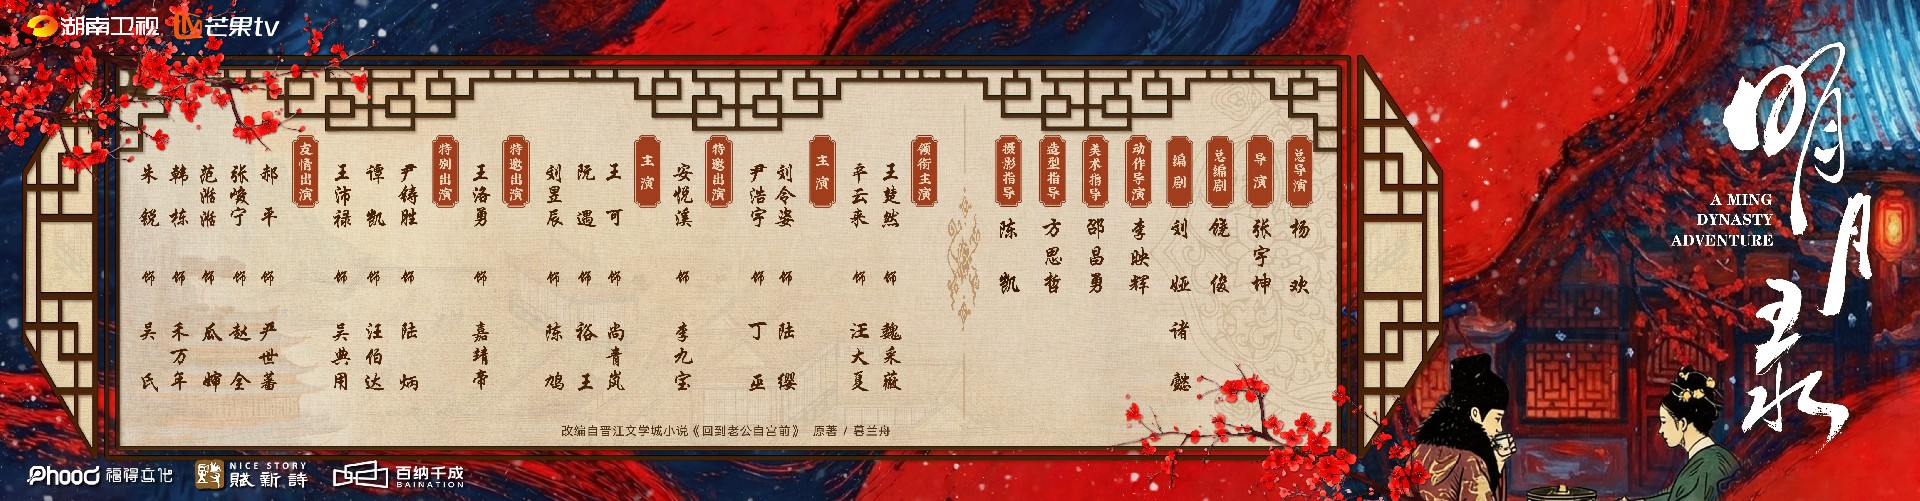 湖南卫视
芒果tv
明月录
A MING
DYNASTY
ADVENTURE
总导演
杨欢
导演
张宇坤
总编剧
饶俊
编剧
刘娅 诸懿
动作导演
李映辉
美术指导
邵昌勇
造型指导
方思哲
摄影指导
陈凯
领衔主演
王楚然 饰 魏采薇
辛云来 饰 汪大夏
主演
刘令姿 饰 陆缨
尹浩宇 饰 丁巫
特邀出演
安悦溪 饰 李九宝
主演
王可 饰 尚青岚
阮遇 饰 裕王
刘昱辰 饰 陈鸠
特邀出演
王洛勇 饰 嘉靖帝
特别出演
尹铸胜 饰 陆炳
谭凯 饰 汪伯达
王沛禄 饰 吴典用
友情出演
郝平 饰 严世蕃
张峻宁 饰 赵全
范湉湉 饰 瓜婶
韩栋 饰 禾万年
朱锐 饰 吴氏
改编自晋江文学城小说《回到老公自宫前》 原著 / 暮兰舟
Phood 福得文化
NICE STORY
赋新诗
百纳千成
BAINATION